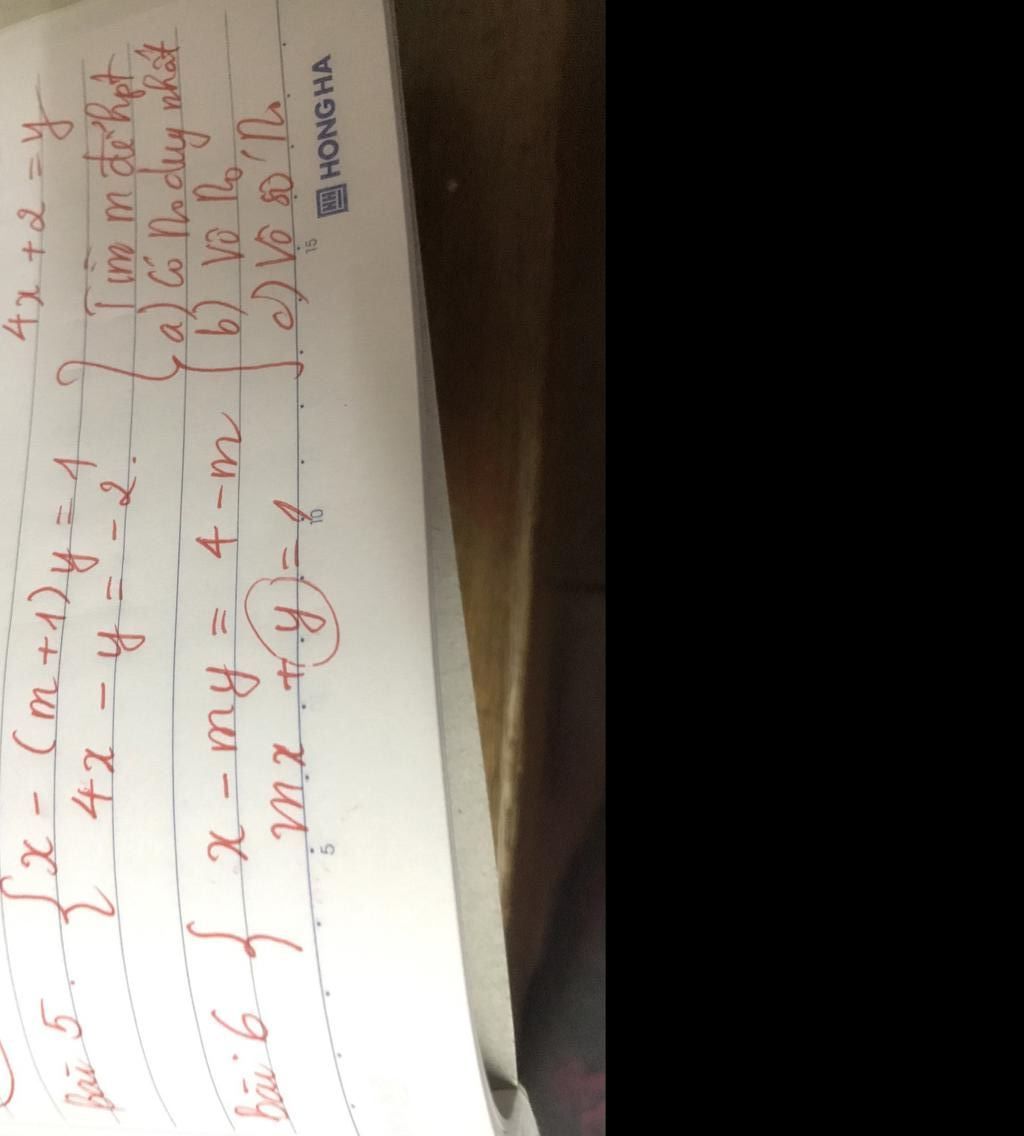 4x + 2 = y
bài 5. { x - (m+1)y = 1
4x - y = -2.
bài 6 { x - my = 4 - m
mx + y = 1
} Tìm m để hpt
a) Có n₀ duy nhất
b) Vô n₀
c) Vô số n₀
5 10 15
HH HONG HA